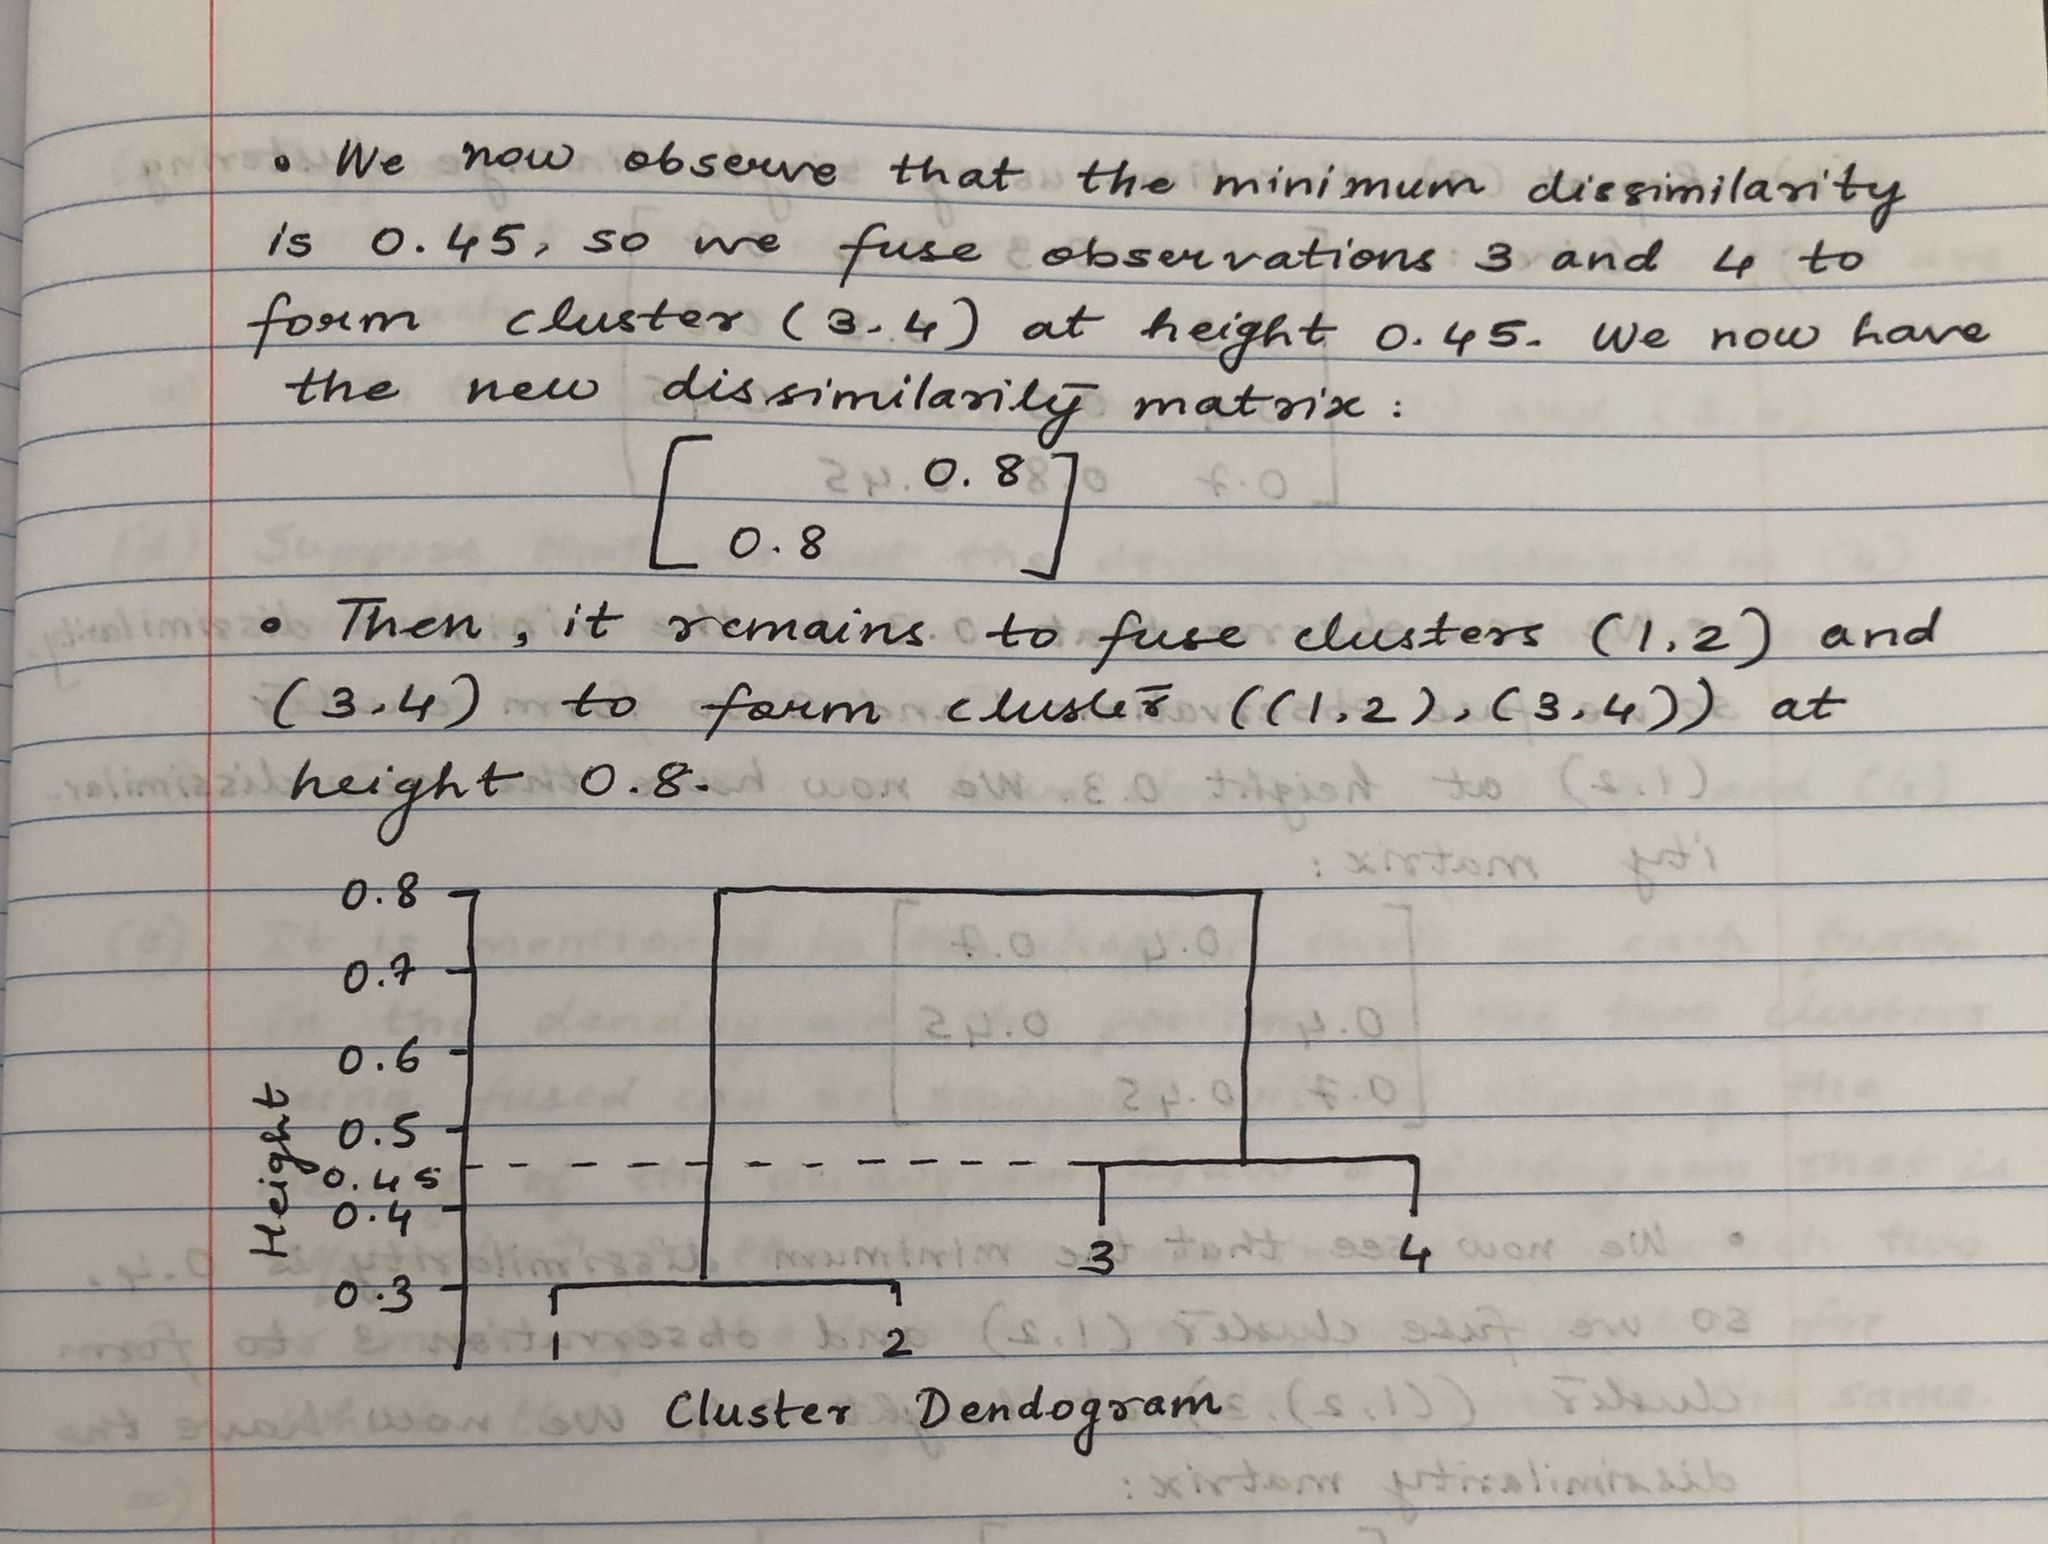 • We now observe that the minimum dissimilarity
is 0.45, so we fuse observations 3 and 4 to
form cluster (3,4) at height 0.45. We now have
the new dissimilarity matrix:
0.8
0.8
• Then, it remains to fuse clusters (1,2) and
(3,4) to form cluster ((1,2),(3,4)) at
height 0.8.
0.8
0.7
0.6
0.5
0.45
0.4
0.3
Height
3 4
1 2
Cluster Dendogram